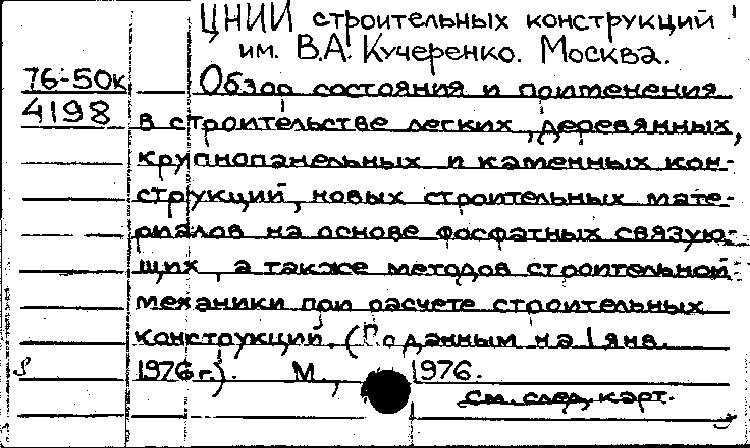 ЦНИИ строительных конструкций
им. В.А. Кучеренко. Москва.
76-50к Обзор состояния и применения
4198 в строительстве легких, деревянных,
крупнопанельных и каменных кон-
струкций, новых строительных мате-
риалов на основе фосфатных связую-
щих, а также методов строительной
механики при расчете строительных
конструкций. (По данным на 1 янв.
1976 г.). М., 1976.
см. след. карт.